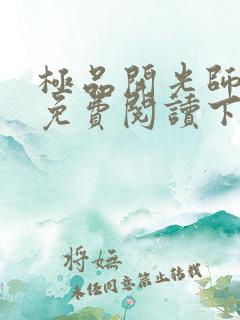 極品開光師
免費閱讀下
将嫵
未经同意禁止转载